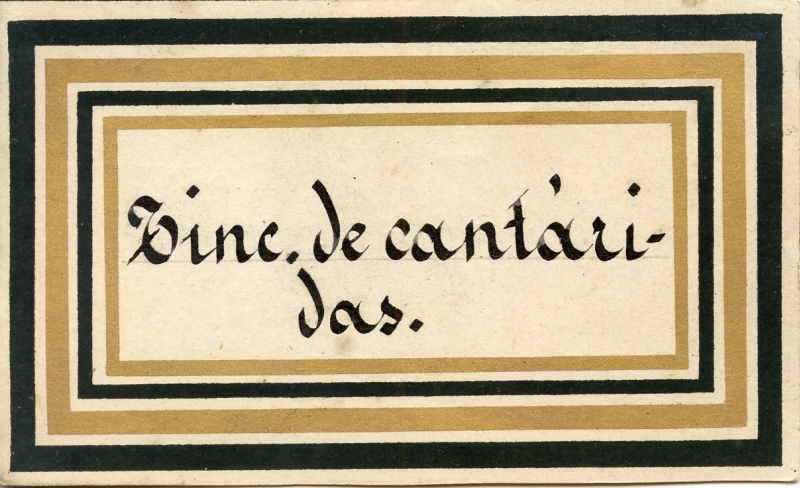 Tinc. de cantári-
das.